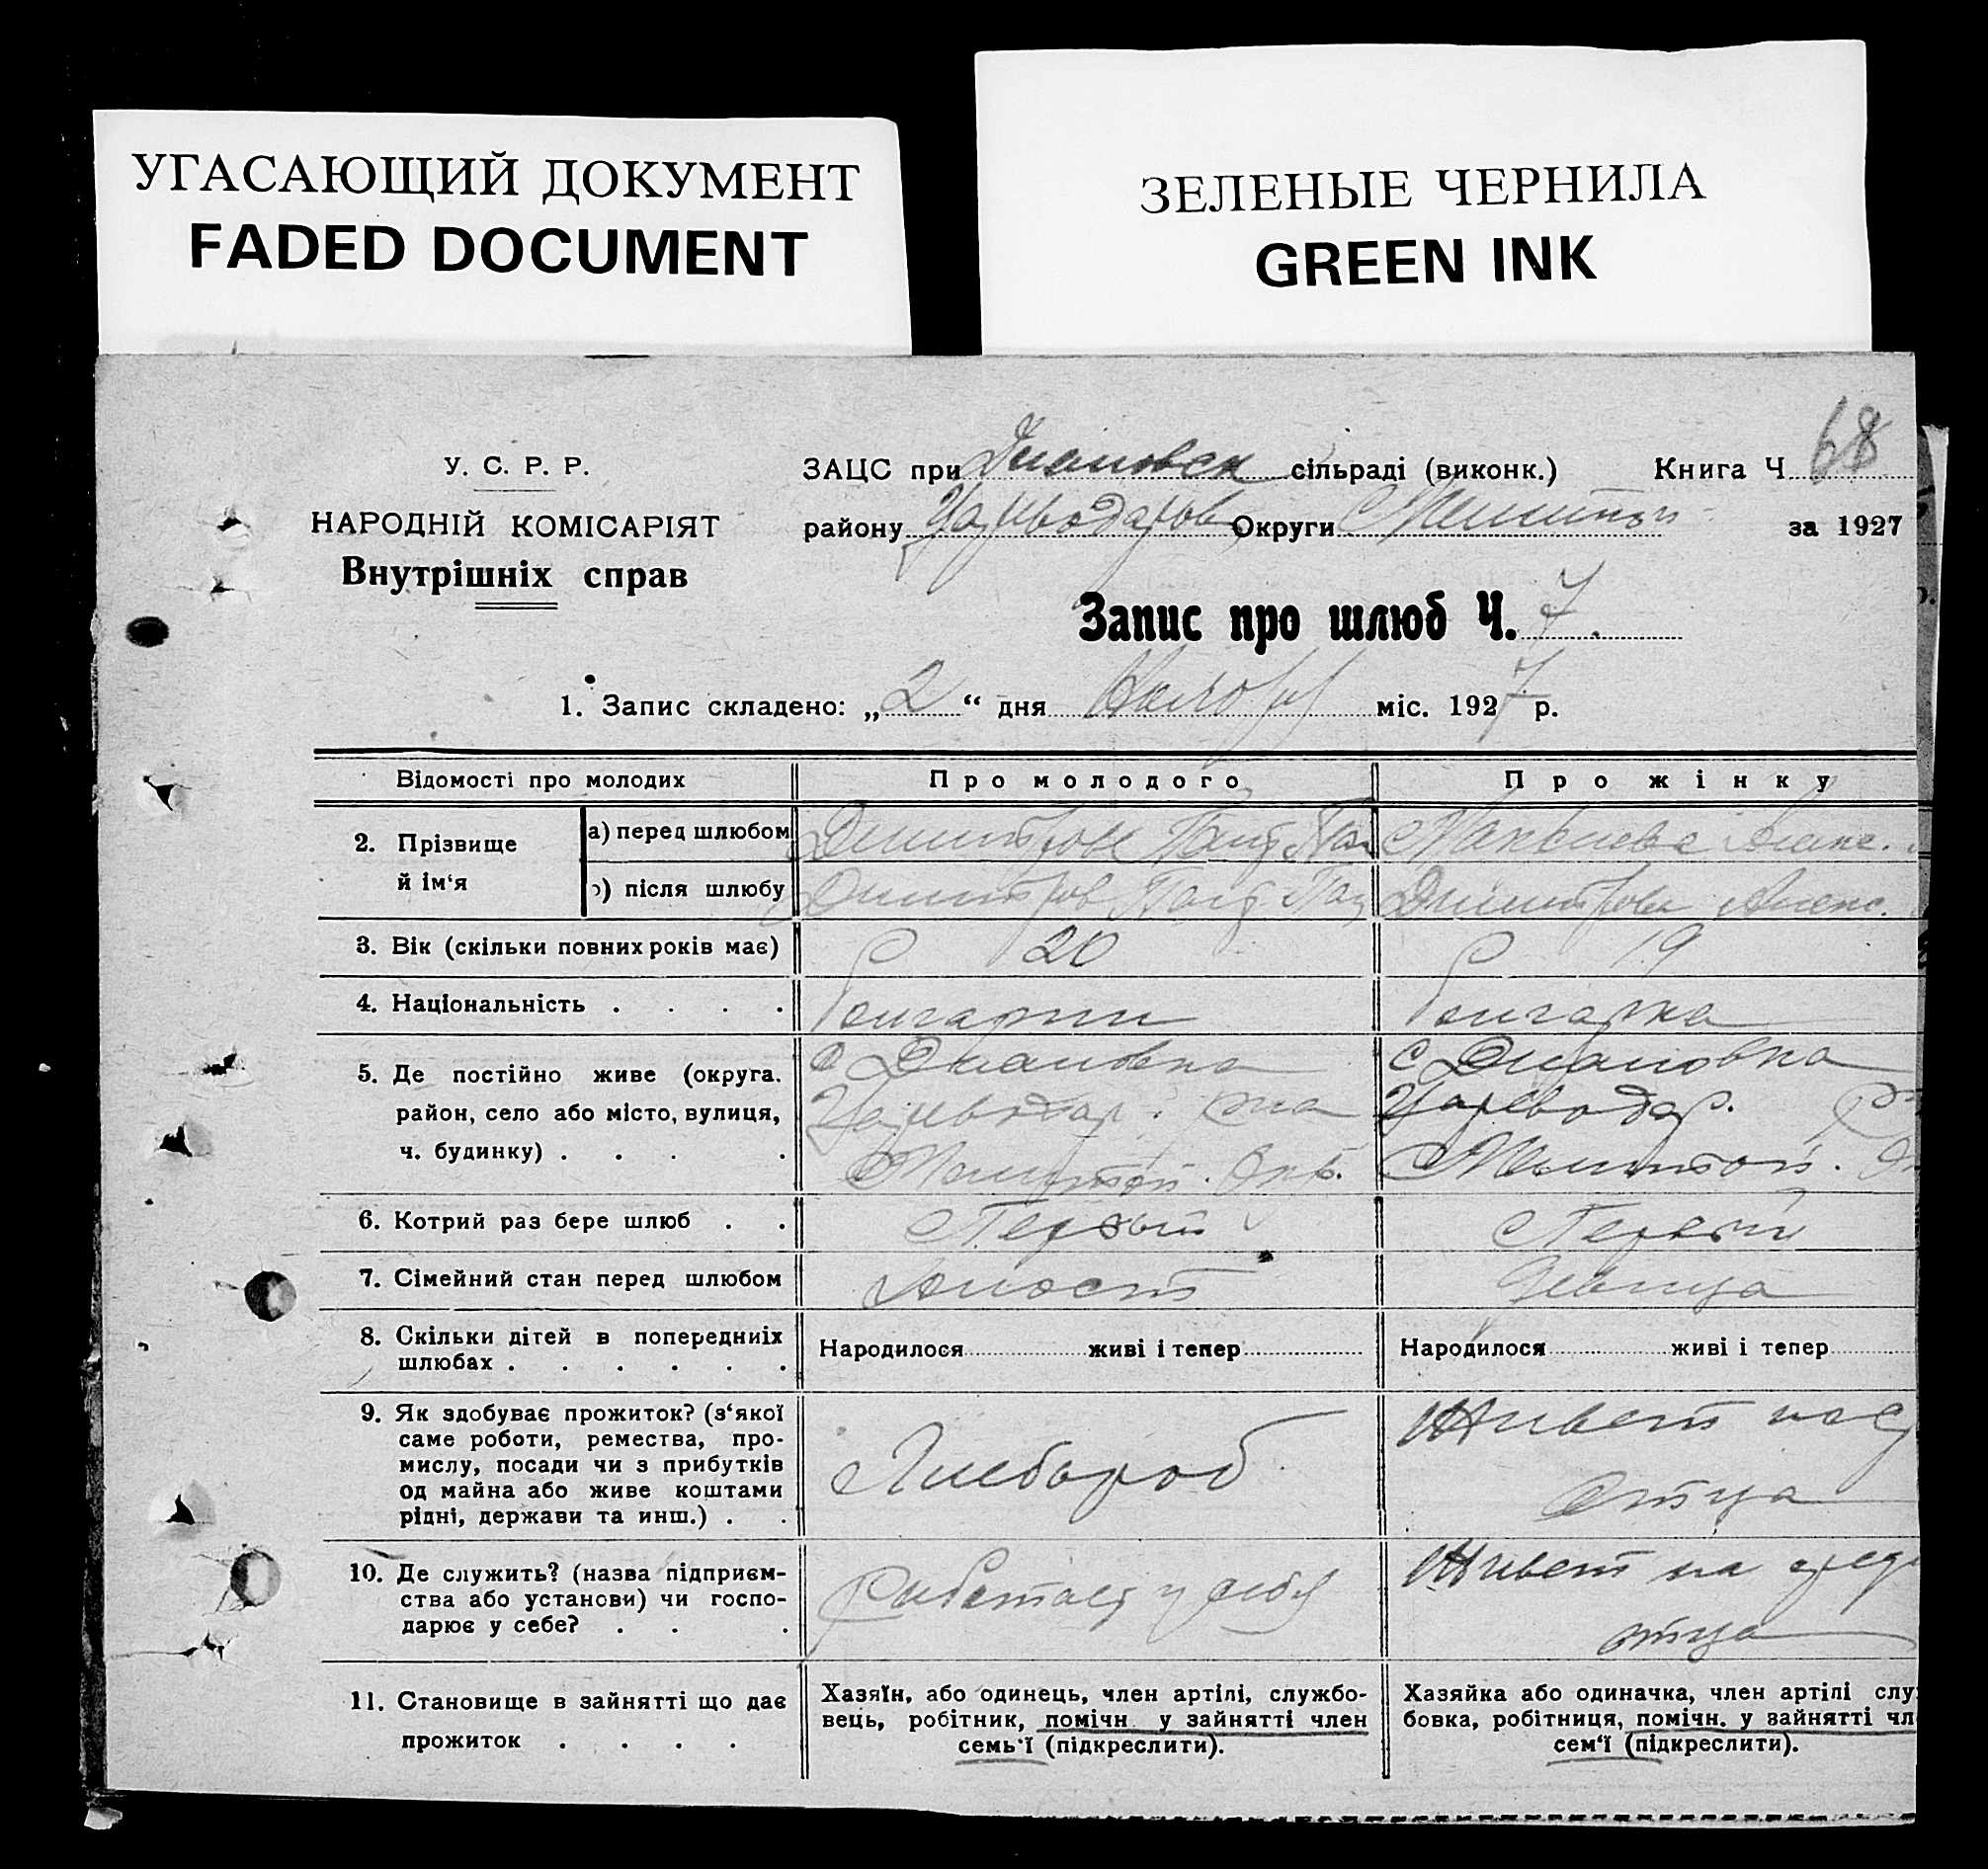 УГАСАЮЩИЙ ДОКУМЕНТ
FADED DOCUMENT
ЗЕЛЕНЫЕ ЧЕРНИЛА
GREEN INK
У. С. Р. Р.
НАРОДНІЙ КОМІСАРІЯТ
Внутрішніх справ
ЗАЦС при Диановск сільраді (виконк.) Книга Ч 68
району Цареводаров Округи Мелитоп за 1927
Запис про шлюб Ч. 7.
1. Запис складено: „2“ дня міс. 1927 р.
Відомості про молодих Про молодого Про жінку
2. Прізвище й ім‘я
а) перед шлюбом Димитров
) після шлюбу Димитров Димитрова Алекс.
3. Вік (скільки повних років має) 20 19
4. Національність . . . . Болгарин Болгарка
5. Де постійно живе (округа. с Диановка с Диановка
район, село або місто, вулиця, Цареводар. р-на Цареводар.
ч. будинку) . . . . Мелитоп. Окр. Мелитоп.
6. Котрий раз бере шлюб . . Первый Первый
7. Сімейний стан перед шлюбом Холост Девица
8. Скільки дітей в попередниіх Народилося живі і тепер Народилося живі і тепер
шлюбах . . . . . .
9. Як здобуває прожиток? (з‘якої
саме роботи, ремества, про-
мислу, посади чи з прибутків
од майна або живе коштами
рідні, держави та инш.) . .
Хлебороб
Живет
Отца
10. Де служить? (назва підприєм-
ства або установи) чи госпо-
дарює у себе? . . .
Работает у себя
Живет на сред
отца
11. Становище в зайнятті що дає
прожиток . . . .
Хазяїн, або одинець, член артілі, службо-
вець, робітник, помічн у зайнятті член
семь‘ї (підкреслити).
Хазяйка або одиначка, член артілі слу
бовка, робітниця, помічн. у зайнятті чл
сем‘ї (підкреслити).